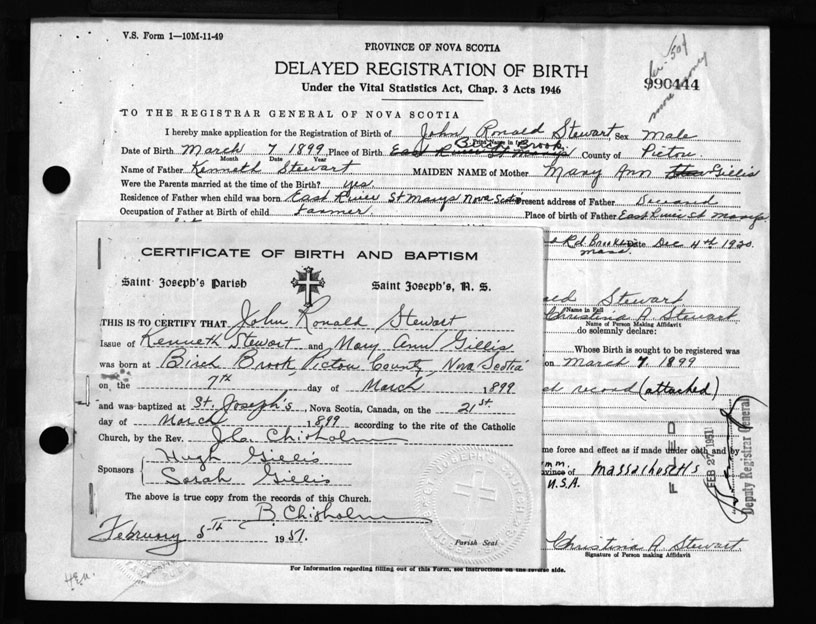 V.S. Form 1—10M-11-49
PROVINCE OF NOVA SCOTIA
DELAYED REGISTRATION OF BIRTH
990444
Under the Vital Statistics Act, Chap. 3 Acts 1946
TO THE REGISTRAR GENERAL OF NOVA SCOTIA
I hereby make application for the Registration of Birth of John Ronald Stewart Sex Male
Date of Birth March 7 1899 Place of Birth East River St Marys Brook County of Pictou
Month Date Year
Name of Father Kenneth Stewart MAIDEN NAME of Mother Mary Ann Gillis
Were the Parents married at the time of the Birth? yes
Residence of Father when child was born East River St Marys Nova Scotia Present address of Father Deceased
Occupation of Father at Birth of child Farmer Place of birth of Father East River St Marys
Rd. Brookline Date Dec 4th 1920
Mass.
CERTIFICATE OF BIRTH AND BAPTISM
Saint Joseph's Parish Saint Joseph's, N. S.
THIS IS TO CERTIFY THAT John Ronald Stewart
Issue of Kenneth Stewart and Mary Ann Gillis
was born at Birch Brook Pictou County, Nova Scotia
on the 7th day of March 1899
and was baptized at St. Joseph's, Nova Scotia, Canada, on the 21st
day of March 1899 according to the rite of the Catholic
Church, by the Rev. Chisholm
Sponsors Hugh Gillis
Sarah Gillis
The above is true copy from the records of this Church.
B Chisholm
February 5th 1951.
Parish Seal
ald Stewart
Name in Full
Christina A. Stewart
Name of Person Making Affidavit
do solemnly declare:
Whose Birth is sought to be registered was
on March 7, 1899
record (attached)
me force and effect as if made under oath and by
vince of Massachusetts
U.S.A.
FILED
FEB 2 1951
Deputy Registrar General
Christina A Stewart
Signature of Person making Affidavit
For Information regarding filling out of this Form, see instructions on the reverse side.